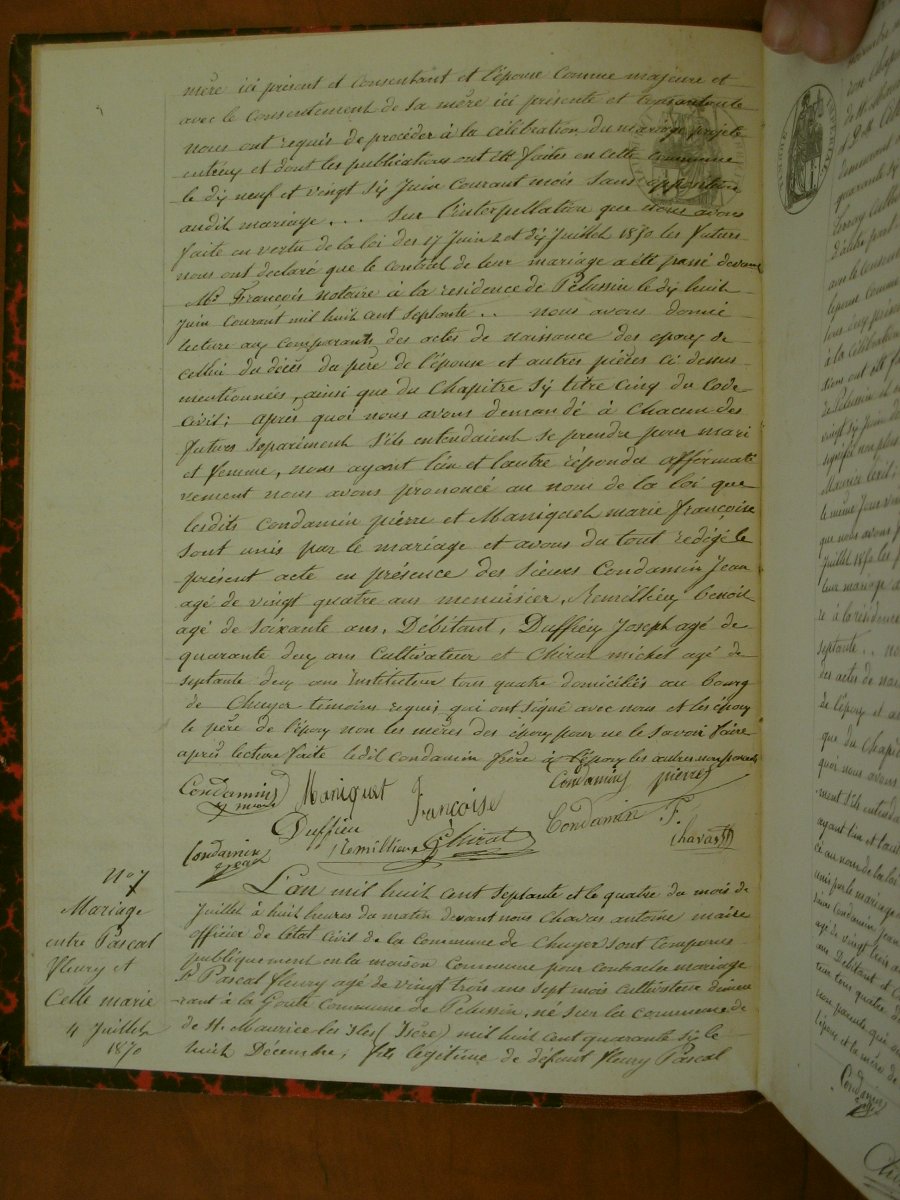 mère ici présent et consentant et l'épouse comme majeure et
avec le consentement de sa mère ici présente et consentante
nous ont requis de procéder à la célébration du mariage projeté
entr'eux et dont les publications ont été faites en cette commune
le dix neuf et vingt six Juin courant mois sans opposition
audit mariage... Sur l'interpellation que nous avons
faite en vertu de la loi des 17 Juin 2 et dix Juillet 1850 les futurs
nous ont déclaré que le contrat de leur mariage a été passé devant
Me François notaire à la résidence de Pélussin le dix huit
Juin courant mil huit cent septante.. nous avons donné
lecture aux comparants des actes de naissance des epoux de
cellui du décès du père de l'épouse et autres pièces ci dessus
mentionnées, ainsi que du Chapitre six titre cinq du Code
civil; après quoi nous avons demandé à chacun des
futurs séparément s'ils entendaient se prendre pour mari
et femme, nous ayant l'un et l'autre répondu affirmati
vement nous avons prononcé au nom de la loi que
lesdits Condamin pierre et Maniquet marie françoise
sont unis par le mariage et avons du tout redigé le
présent acte en présence des sieurs Condamin Jean
agé de vingt quatre ans menuisier, Remillieux benoit
agé de soixante ans, Débitant, Duffieux Joseph agé de
quarante deux ans Cultivateur et Chirat michel agé de
septante deux ans Instituteur tous quatre domiciliés au bourg
de Chuyer témoins requis qui ont signé avec nous et les époux
le père de l'époux non les mères des époux pour ne le savoir faire
après lecture faite ledit Condamin frère à l'époux les autres non parents
Condamin Maniquet Françoise Condamin pierre
Duffieu Condamin F.
Condamin Jean Remillieux Chirat Chavas
No 7
Mariage
entre Pascal
fleury et
Celle marie
4 Juillet
1870
L'an mil huit cent septante et le quatre du mois de
Juillet à huit heures du matin devant nous Chavas antoine maire
officier de l'état civil de la commune de Chuyer sont comparus
publiquement en la maison Commune pour contracter mariage
Sr Pascal fleury agé de vingt trois ans sept mois cultivateur demeu
rant à la Goute Commune de Pelussin, né sur la commune de
de St. Maurice les Iles (Isère) mil huit cent quarante six le
huit Décembre, fils légitime de défunt fleury Pascal